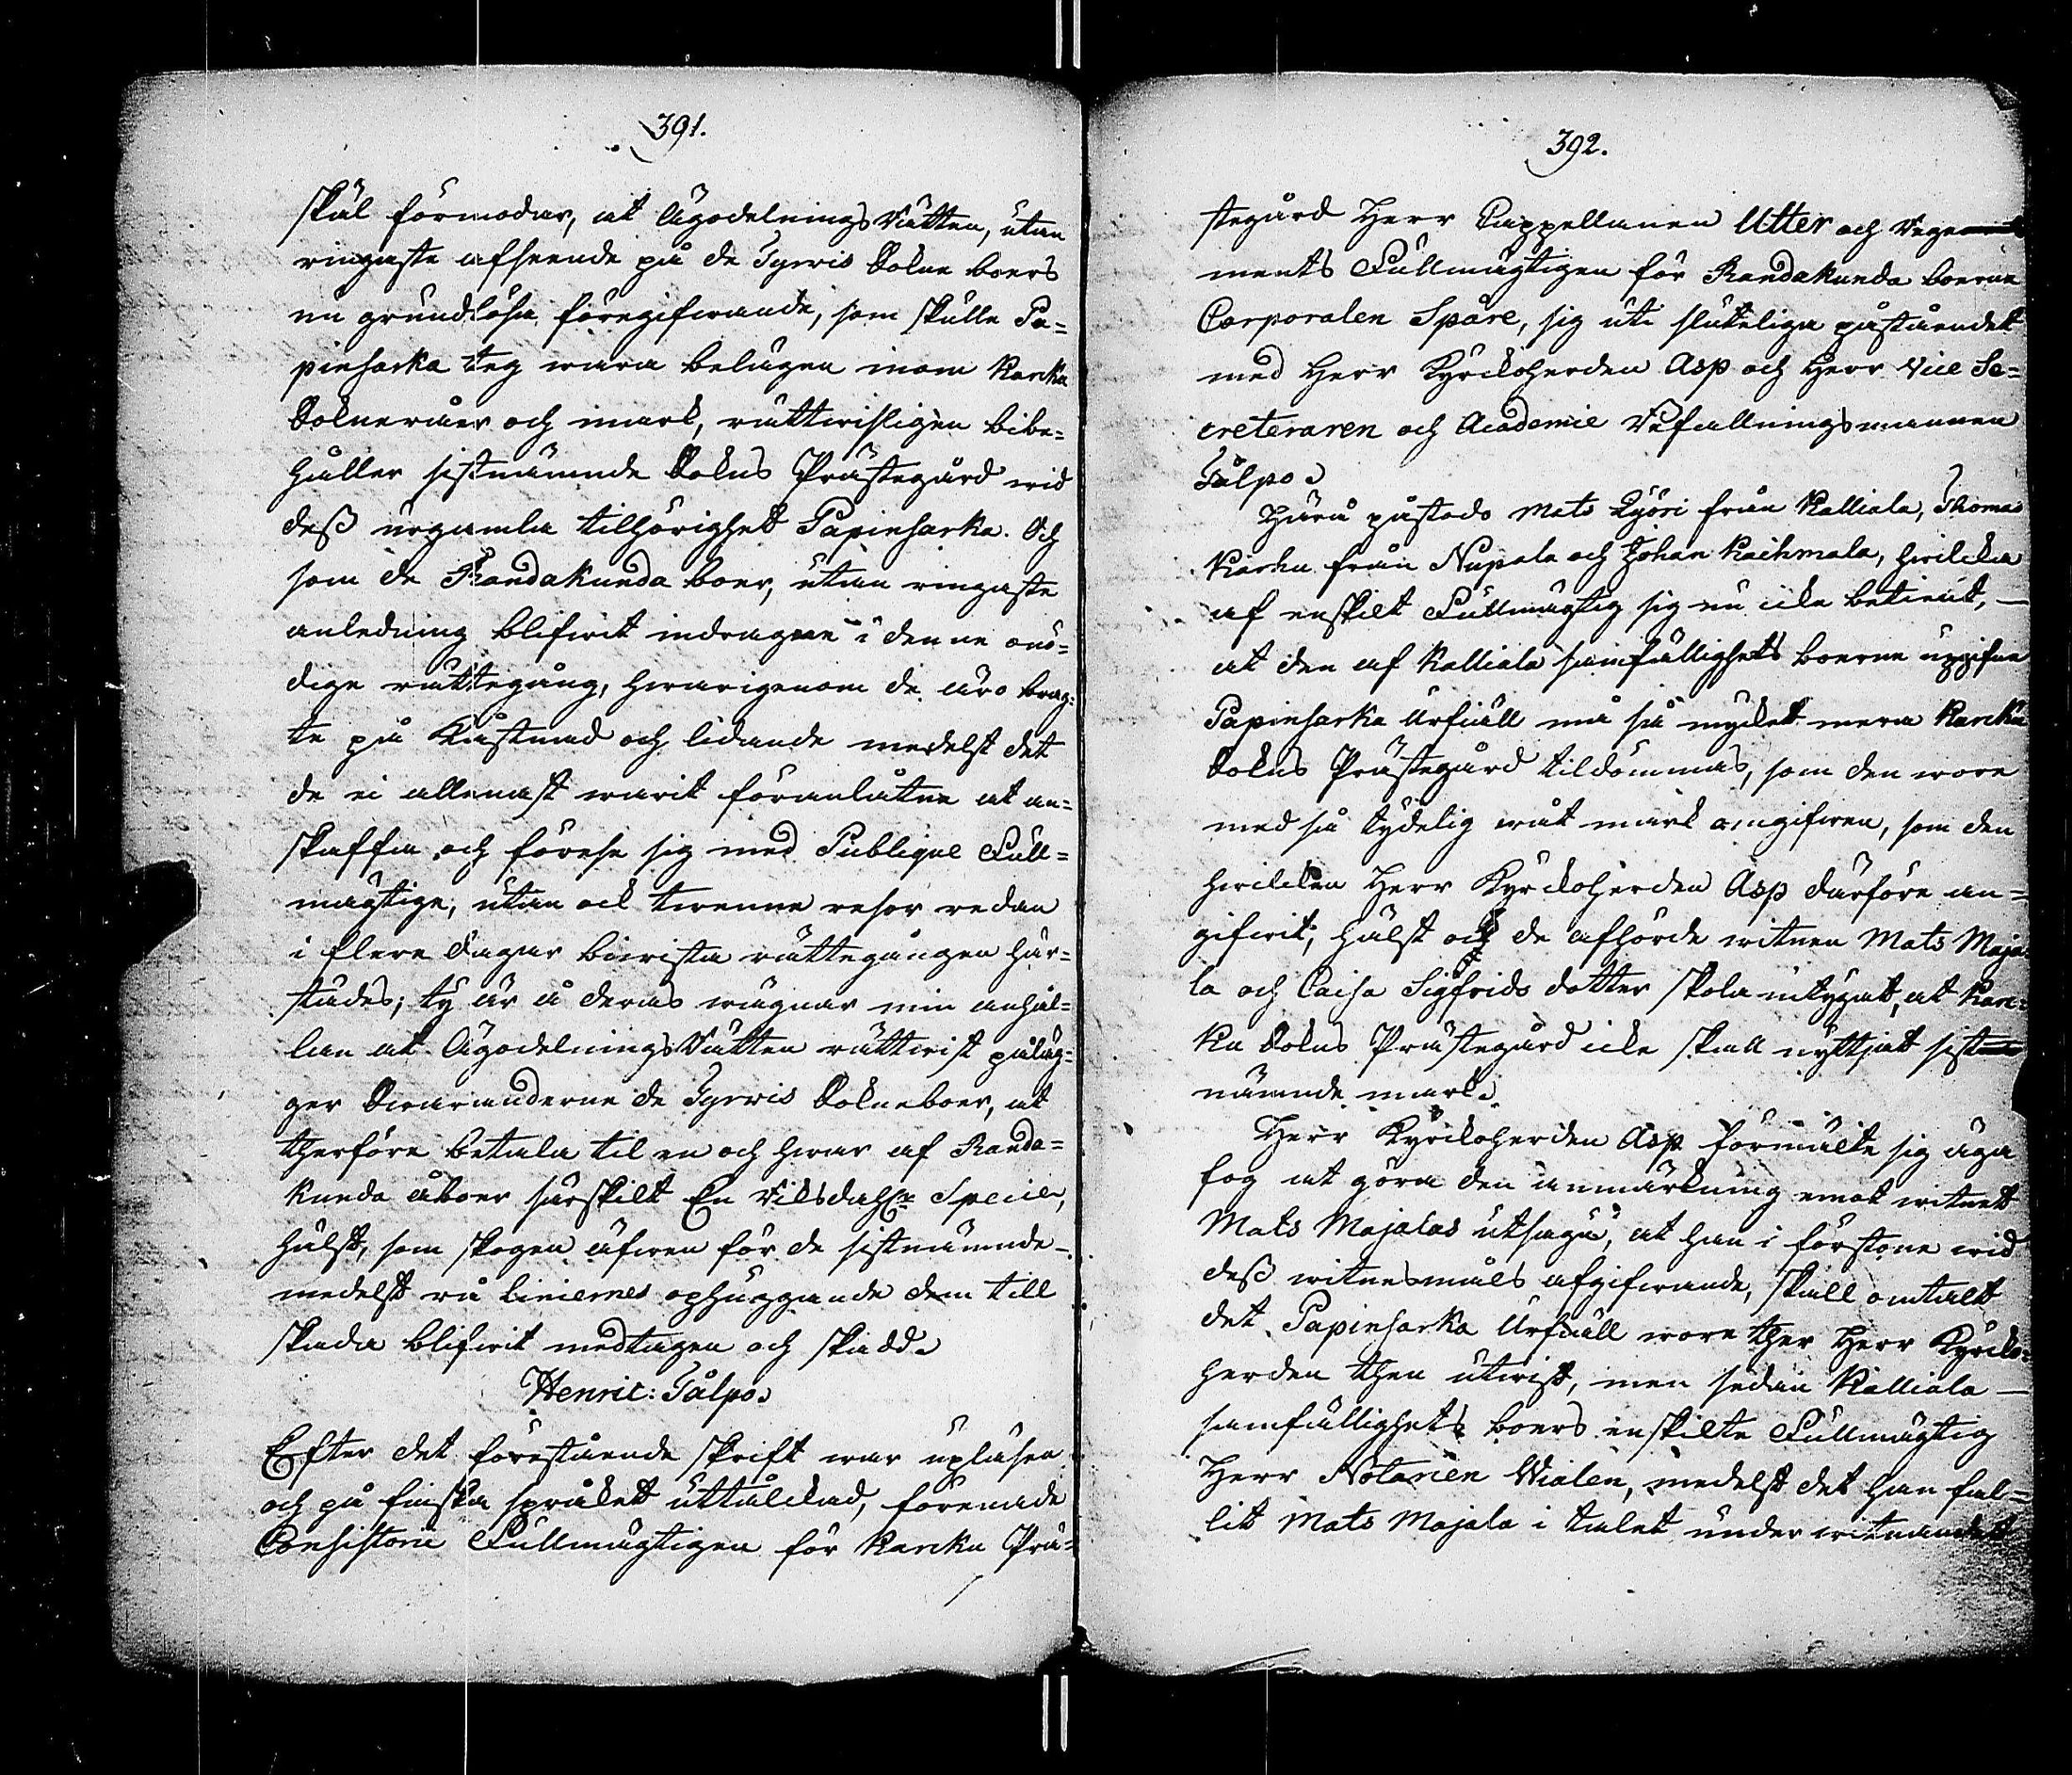 391.
skäl förmodar, at Ägodelnings Rätten, utan
ringaste afseende på de Tyrwis Sokne boers
nu grundlösa föregifwande, som skulle Pa=
pinsarka teg wara belägen inom Karcku
Sokneråer och mark, rättwisligen bibe=
håller sistnämnde Sokns Prästegård wid
dess urgamla tillhörighet Papinsarka. Och
som de Randakunda boer, utan ringaste
anledning blifwit indragne i denne onö=
dige rättegång, hwarigenom de äro brag=
te på Kåstnad och lidande medelst det
de ei allenast warit föranlåtne at an=
skaffa och förese sig med Publique Full=
mägtige, utan ock twenne resor redan
i flere dagar biwista rättegången här=
städes; ty är å deras wägnar min anhål=
lan at Ägodelnings Rätten rättwist påläg=
ger Swaranderne de Tyrwis Sokneboer, at
therföre betala til en och hwar af Randa=
kunda åboer särskilt En Riksdahlr Specie,
hälst, som skogen äfwen för de sistnämnde
medelst rå liniernes ophuggande dem till
skada blifwit medtagen och skadd.
Henric: Tålpo.
Efter det förestående skrift war upläsen
och på finska språket uttålckad, förenade
Consistorii Fullmägtigen för Karcku Prä=
392.
stegård Herr Cappellanen Utter och Rege
ments Fullmägtigen för Randakunda boerne
Corporalen Spåre, sig uti sluteliga påståendet
med Herr Kyrckoherden Asp och Herr Vice Se=
creteraren och Academie Befallningsmannen
Tålpo.
Härå påstods Mats Kyöri från Kalliala, Thomas
Karhu från Nupala och Johan Kaihmala, hwilcka
af enskilt Fullmägtig sig nu icke betient,
at den af Kalliala samfällighets boerne upgifne
Papinsarka Urfiäll må så mycket mera Karcku
Sokns Prästegård tildömmas, som den wore
med så tydelig wåt mark omgifwen, som den
hwilcken Herr Kyrckoherden Asp därföre an=
gifwit; hälst och de afhörde witnen Mats Maja
la och Caisa Sigfrids dotter skola intygat, at Karc=
ku Sokns Prästegård icke skall nyttjat sist
nämnde mark.
Herr Kyrckoherden Asp förmälte sig äga
fog at göra den anmärkning emot witnet
Mats Majalas utsago, at han i förstone wid
dess witnesmåls afgifwande, skall omtalt
det Papinsarka Urfiäll wore ther Herr Kyrcko=
herden then utwist, men sedan Kalliala
samfällighets boers enskilte Fullmägtig
Herr Notarien Wialen, medelst det han fal=
lit Mats Majala i talet under witnandet